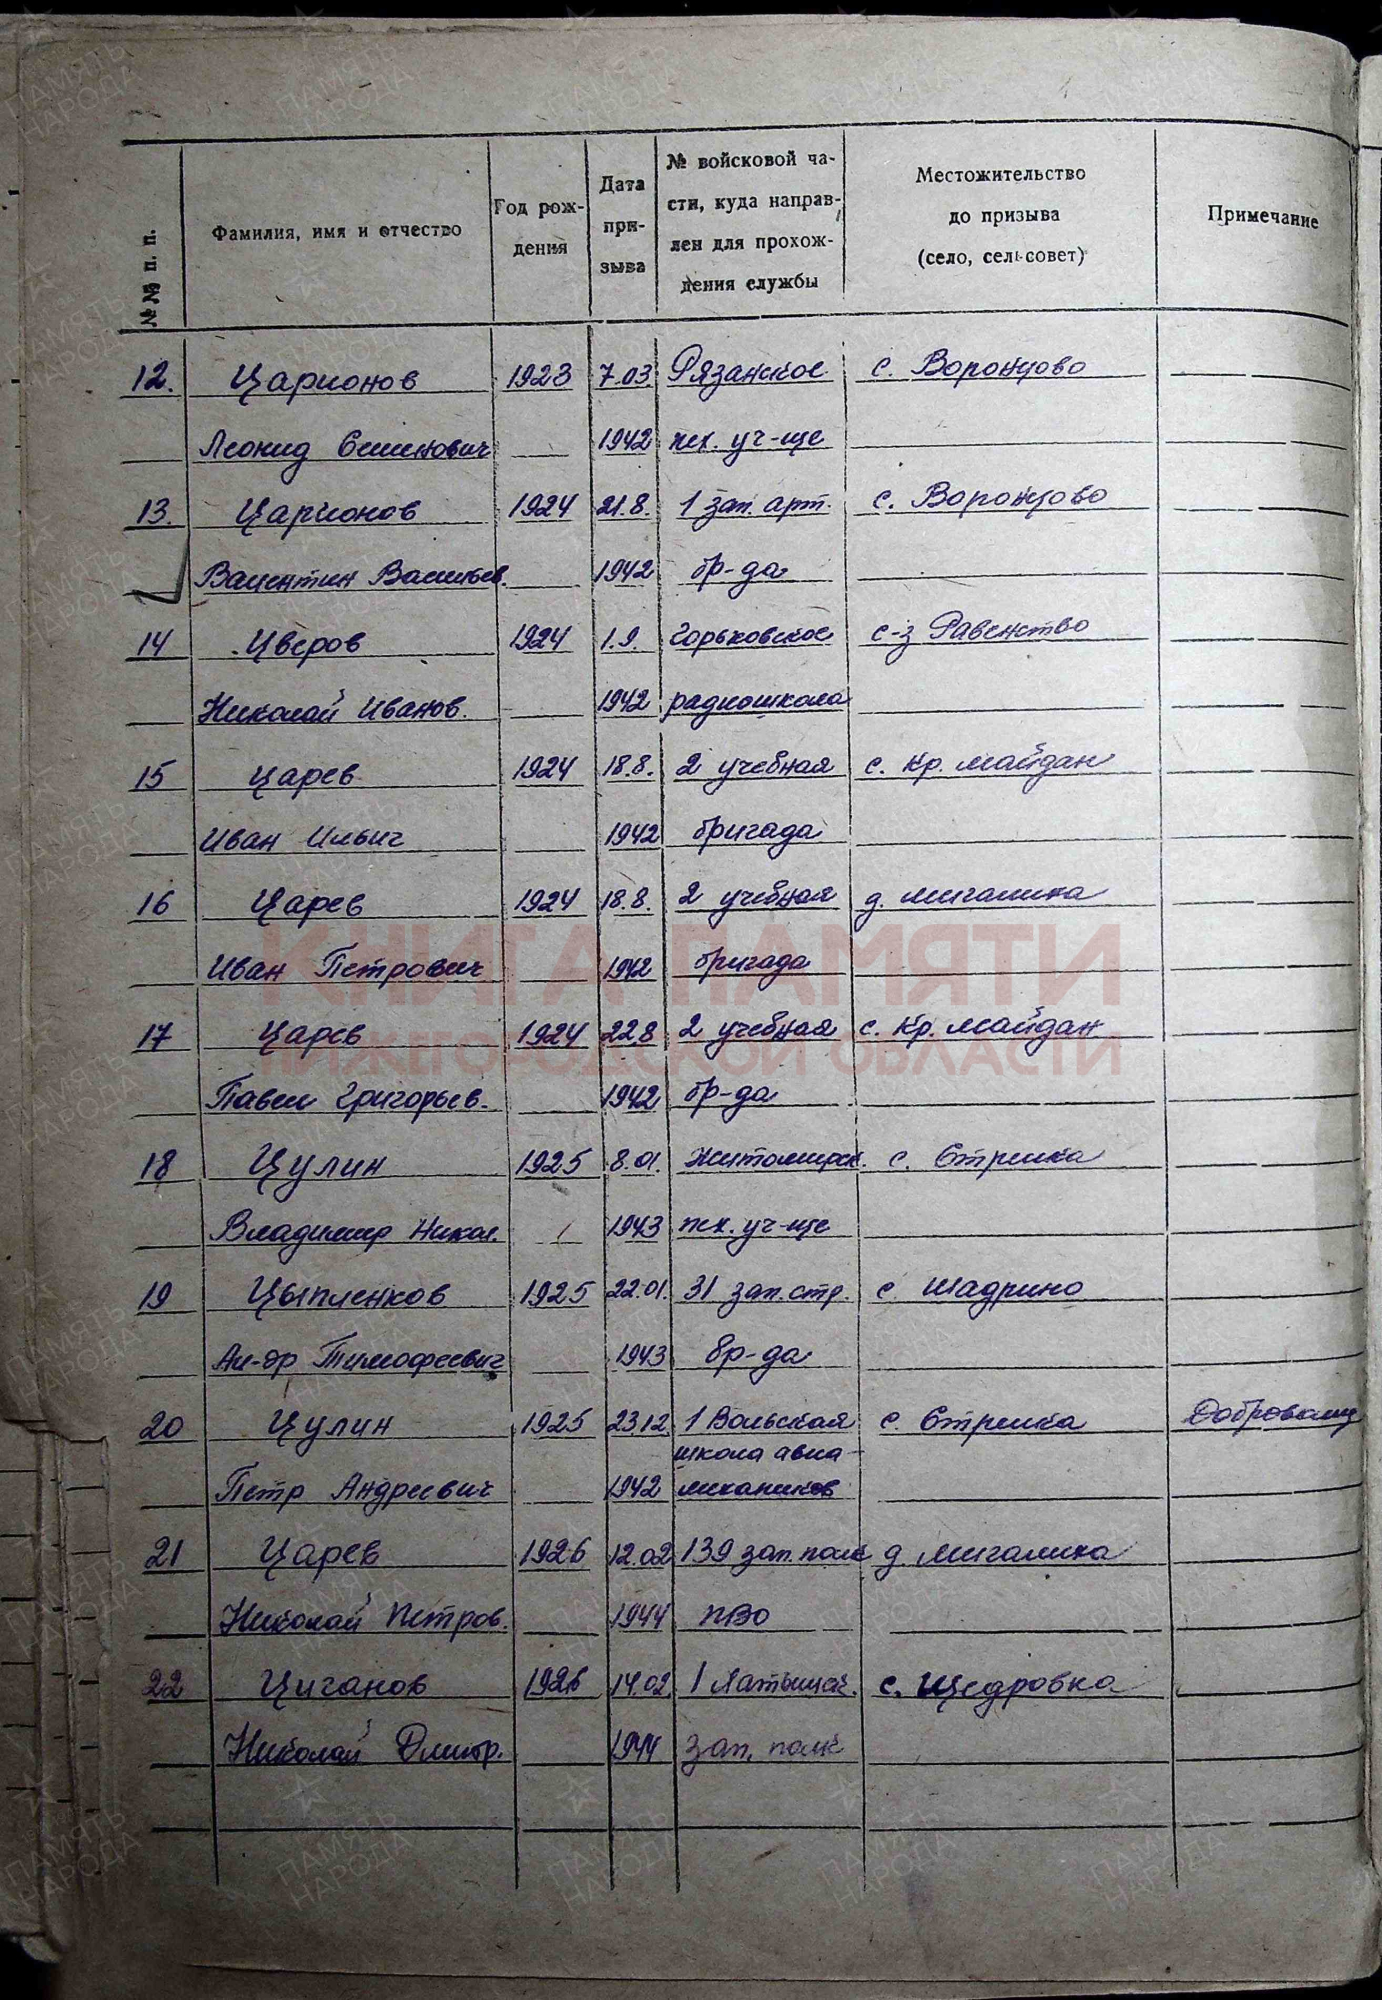 №№ п. п.
Фамилия, имя и отчество
Год рож-
дения
Дата
при-
зыва
№ войсковой ча-
сти, куда направ-
лен для прохож-
дения службы
Местожительство
до призыва
(село, сельсовет)
Примечание
12. Царионов 1923 7.03 Рязанское с. Воронцово
Леонид Семенович 1942 пех. уч-ще
13. Царионов 1924 21.8. 1 зап. арт. с. Воронцово
Валентин Васильев. 1942 бр-да
14 Цверов 1924 1.9. Горьковское с-з Равенство
Николай Иванов. 1942 радиошкола
15 Царев 1924 18.8. 2 учебная с. Кр. Майдан
Иван Ильич 1942 бригада
16 Царев 1924 18.8. 2 учебная д. Мигалиха
Иван Петрович 1942 бригада
17 Царев 1924 22.8 2 учебная с. Кр. Майдан
Павел Григорьев. 1942 бр-да
18 Цулин 1925 8.01. Житомирск. с. Стрелка
Владимир Никол. 1943 пех. уч-ще
19 Цыпленков 1925 22.01. 31 зап. стр. с. Шадрино
Ал-др Тимофеевич 1943 бр-да
20 Цулин 1925 23.12. 1 Вольская с. Стрелка Доброволец
школа авиа-
Петр Андреевич 1942 механиков
21 Царев 1926 12.02 139 зап. полк д. Мигалиха
Николай Петров. 1944 ПВО
22 Циганов 1926 14.02. 1 Латышск. с. Щедровка
Николай Дмитр. 1944 зап. полк
КНИГА ПАМЯТИ
НИЖЕГОРОДСКОЙ ОБЛАСТИ
ПАМЯТЬ
НАРОДА